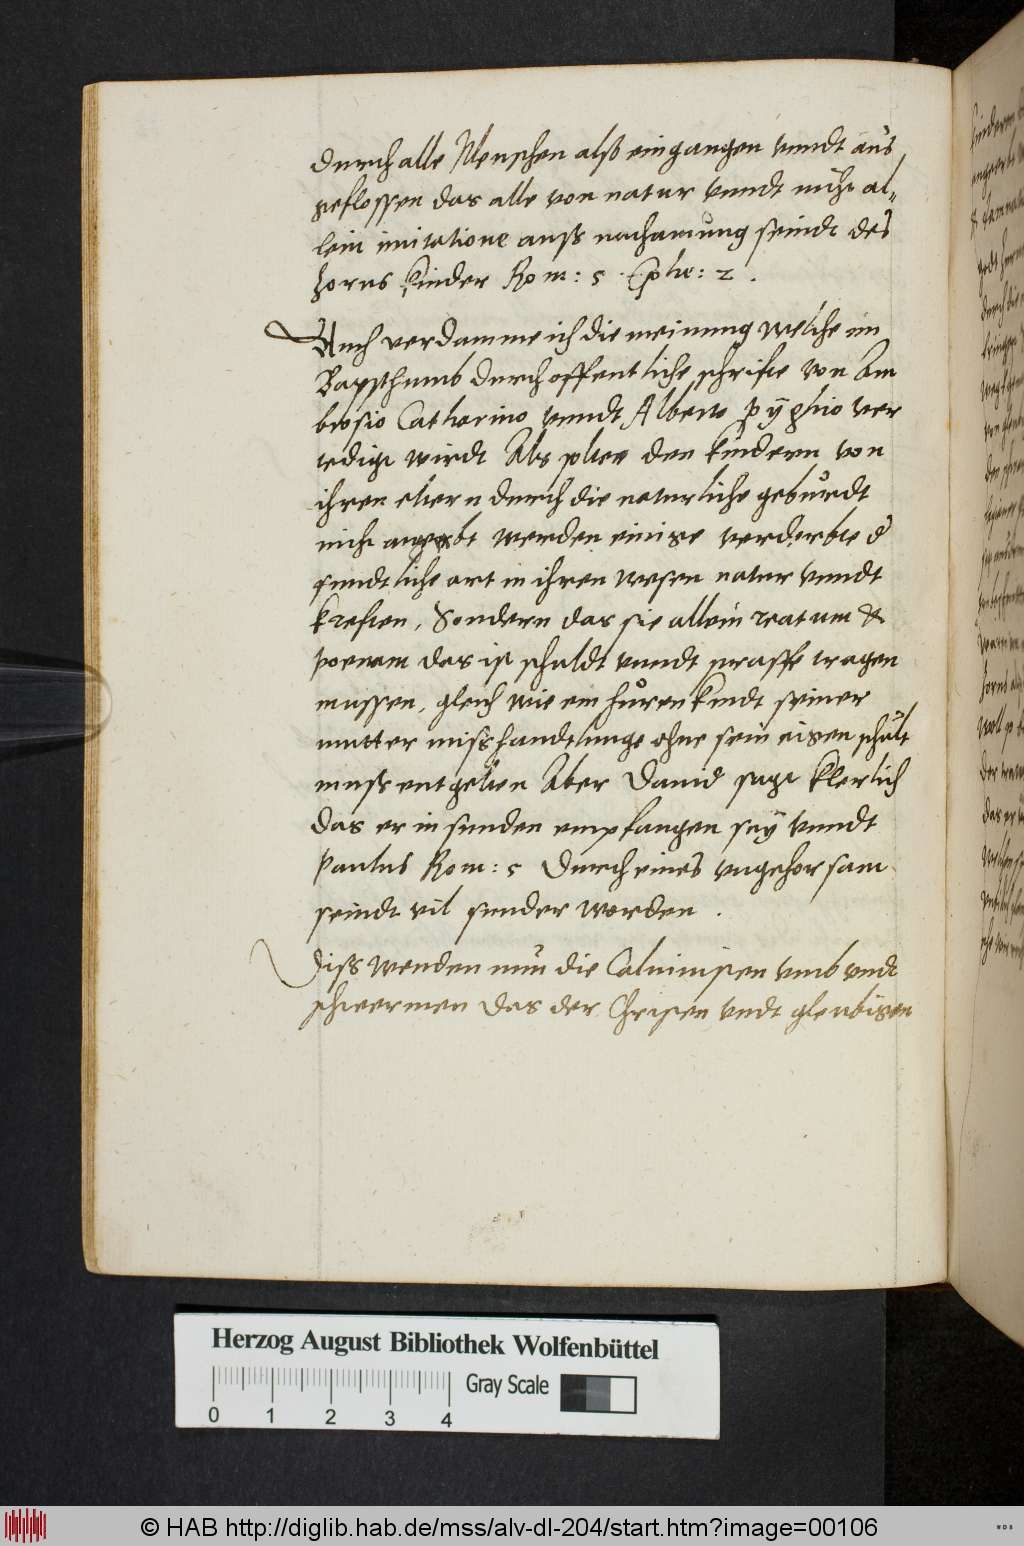 durch alle Menschen alß eingangen vnndt aus
geflossen das alle von natur vnndt nicht al„
lein imitatione auss nachamung seindt des
Zorns kinder Rom: 5. Ephe: 2.
Auch verdamme ich die meinung welche im
Bapsthumb durch offentliche schrifte von Am
brosio Catharino vnndt Alberto pÿghio ver
tedigt wirdt Als solten den kindern von
ihren eltern durch die naturliche geburdt
nicht angeerbt werden einige verderbte
sundtliche art in ihren wesen natur vnndt
kreften, Sondern das sie allein reatum &
poenam das ist schuldt vnndt straffe tragen
mussen, gleich wie ein hurenkindt seiner
mutter misshandtlunge ohne sein eigen schult
muss entgelten Aber Dauid sagt klerlich
das er in sunden empfangen seÿ vnndt
Paulus Rom: 5 durch eines vngehorsam
seindt vil sunder worden.
Diss wenden nun die Caluinisten vmb vndt
schwermen das der Christen vndt gleubigen
Herzog August Bibliothek Wolfenbüttel
Gray Scale
0 1 2 3 4
© HAB http://diglib.hab.de/mss/alv-dl-204/start.htm?image=00106